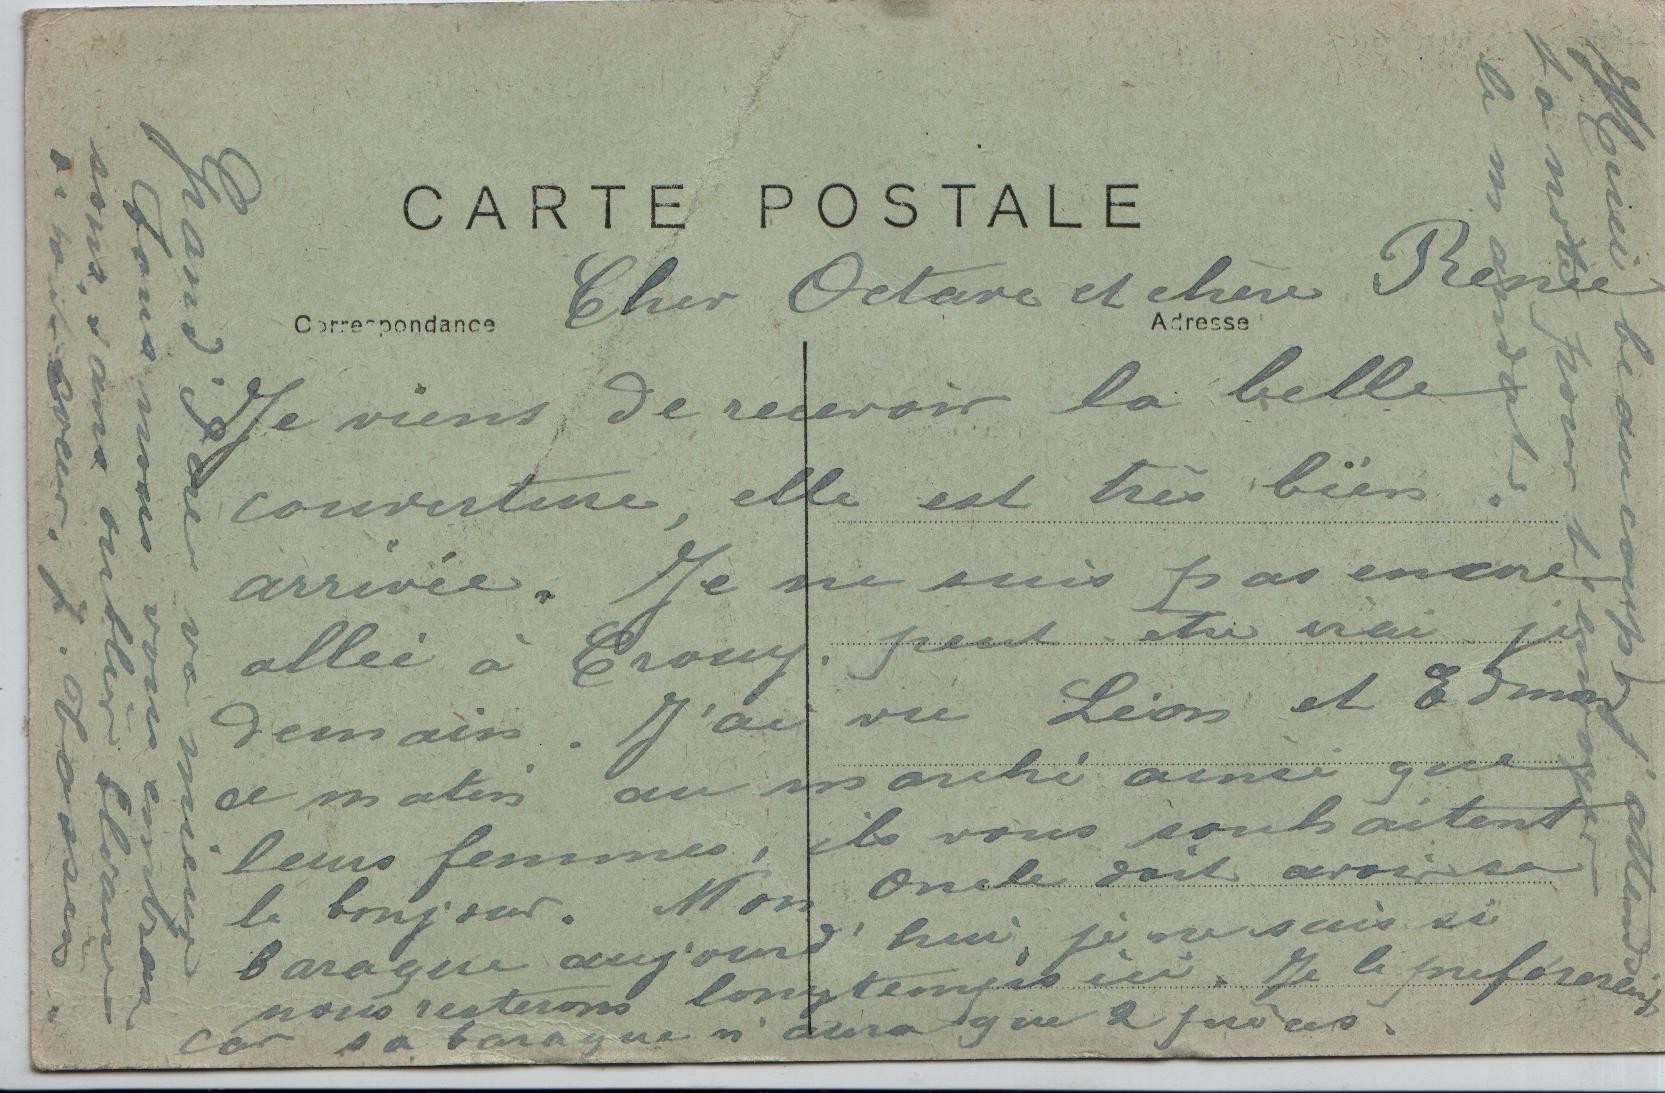 CARTE POSTALE
Correspondance
Adresse
Cher Octave et chère Renée
Je viens de recevoir la belle
couverture, elle est très bien
arrivée. Je ne suis pas encore
allée à Crouy. peut etre irai je
demain. J'ai vu Léon et Edmond
ce matin au marché ainsi que
leurs femmes, ils vous souhaitent
le bonjour. Mon Oncle doit avoir sa
baraque aujourd'hui, je ne sais si
nous resterons longtemps ici. Je le préfèrerais
car sa baraque n'aura que 2 pièces.
Grand'Père va mieux
Tous nous vous embras
sons, sans oublier Elvane
de votre Soeur.
Merci beaucoup, j'attendrai
ta note pour t'envoyer
le mandat.